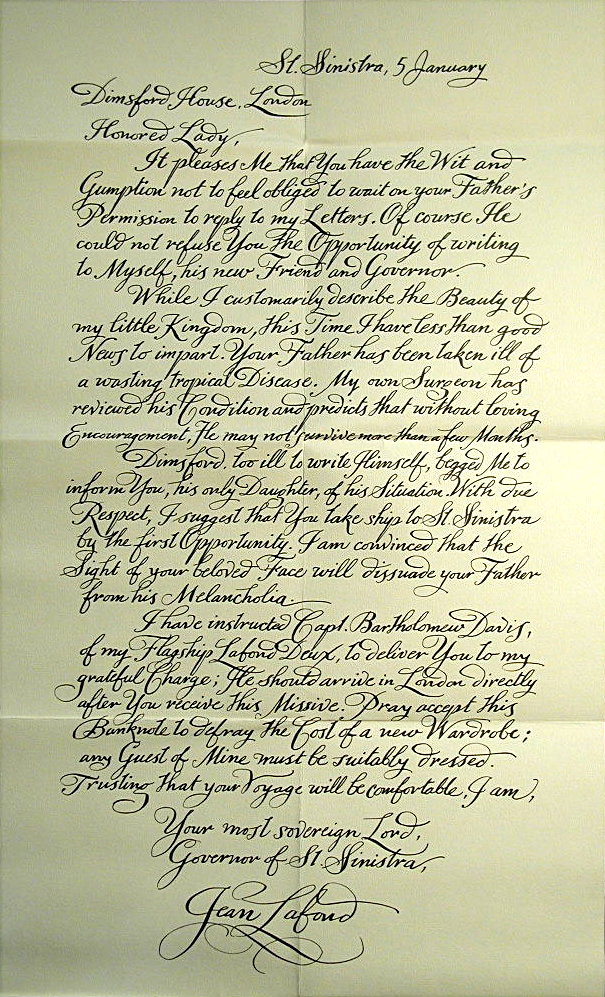 St. Sinistra, 5 January
Dimsford House, London
Honored Lady,
It pleases Me that You have the Wit and
Gumption not to feel obliged to wait on your Father's
Permission to reply to my Letters. Of course He
could not refuse You the Opportunity of writing
to Myself, his new Friend and Governor.
While I customarily describe the Beauty of
my little Kingdom, this Time I have less than good
News to impart. Your Father has been taken ill of
a wasting tropical Disease. My own Surgeon has
reviewed his Condition and predicts that without loving
Encouragement, He may not survive more than a few Months.
Dimsford, too ill to write Himself, begged Me to
inform You, his only Daughter, of his Situation. With due
Respect, I suggest that You take ship to St. Sinistra
by the first Opportunity. I am convinced that the
Sight of your beloved Face will dissuade your Father
from his Melancholia.
I have instructed Capt. Bartholomew Davis,
of my Flagship Lafond Deux, to deliver You to my
grateful Charge; He should arrive in London directly
after You receive this Missive. Pray accept this
Banknote to defray the Cost of a new Wardrobe;
any Guest of Mine must be suitably dressed.
Trusting that your Voyage will be comfortable, I am,
Your most sovereign Lord,
Governor of St. Sinistra,
Jean Lafond